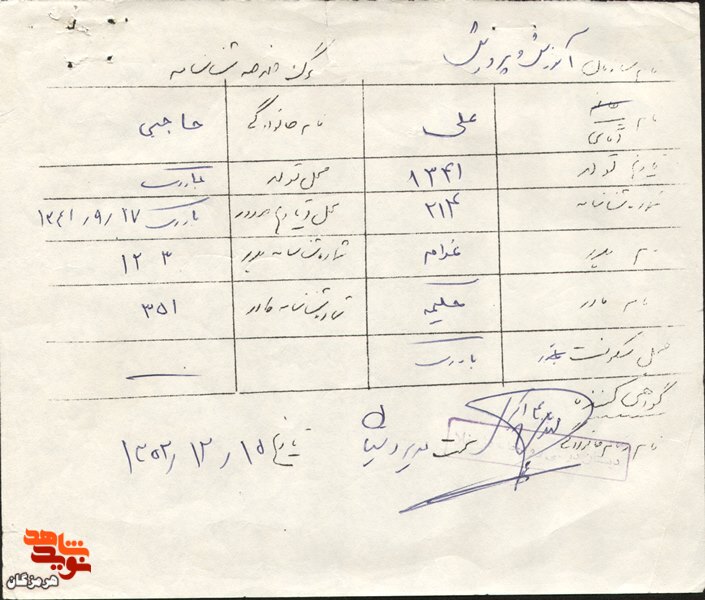 نام سازمان آموزش و پرورش برگ خلاصه شناسنامه
نام خانم آقای علی نام خانوادگی حاجبی
تاریخ تولد ۱۳۴۱ محل تولد
شماره شناسنامه ۲۱۴ محل و تاریخ صدور ۱۳۴۱/۹/۱۷
نام پدر غلام شماره شناسنامه پدر ۱۲۳
نام مادر حلیمه شماره شناسنامه مادر ۳۵۱
محل سکونت پدر
گواهی کننده
نام و نام خانوادگی سمت مدیر دبستان تاریخ ۱۳۵۲/۱۲/۱۵
نوید شاهد
هرمزگان